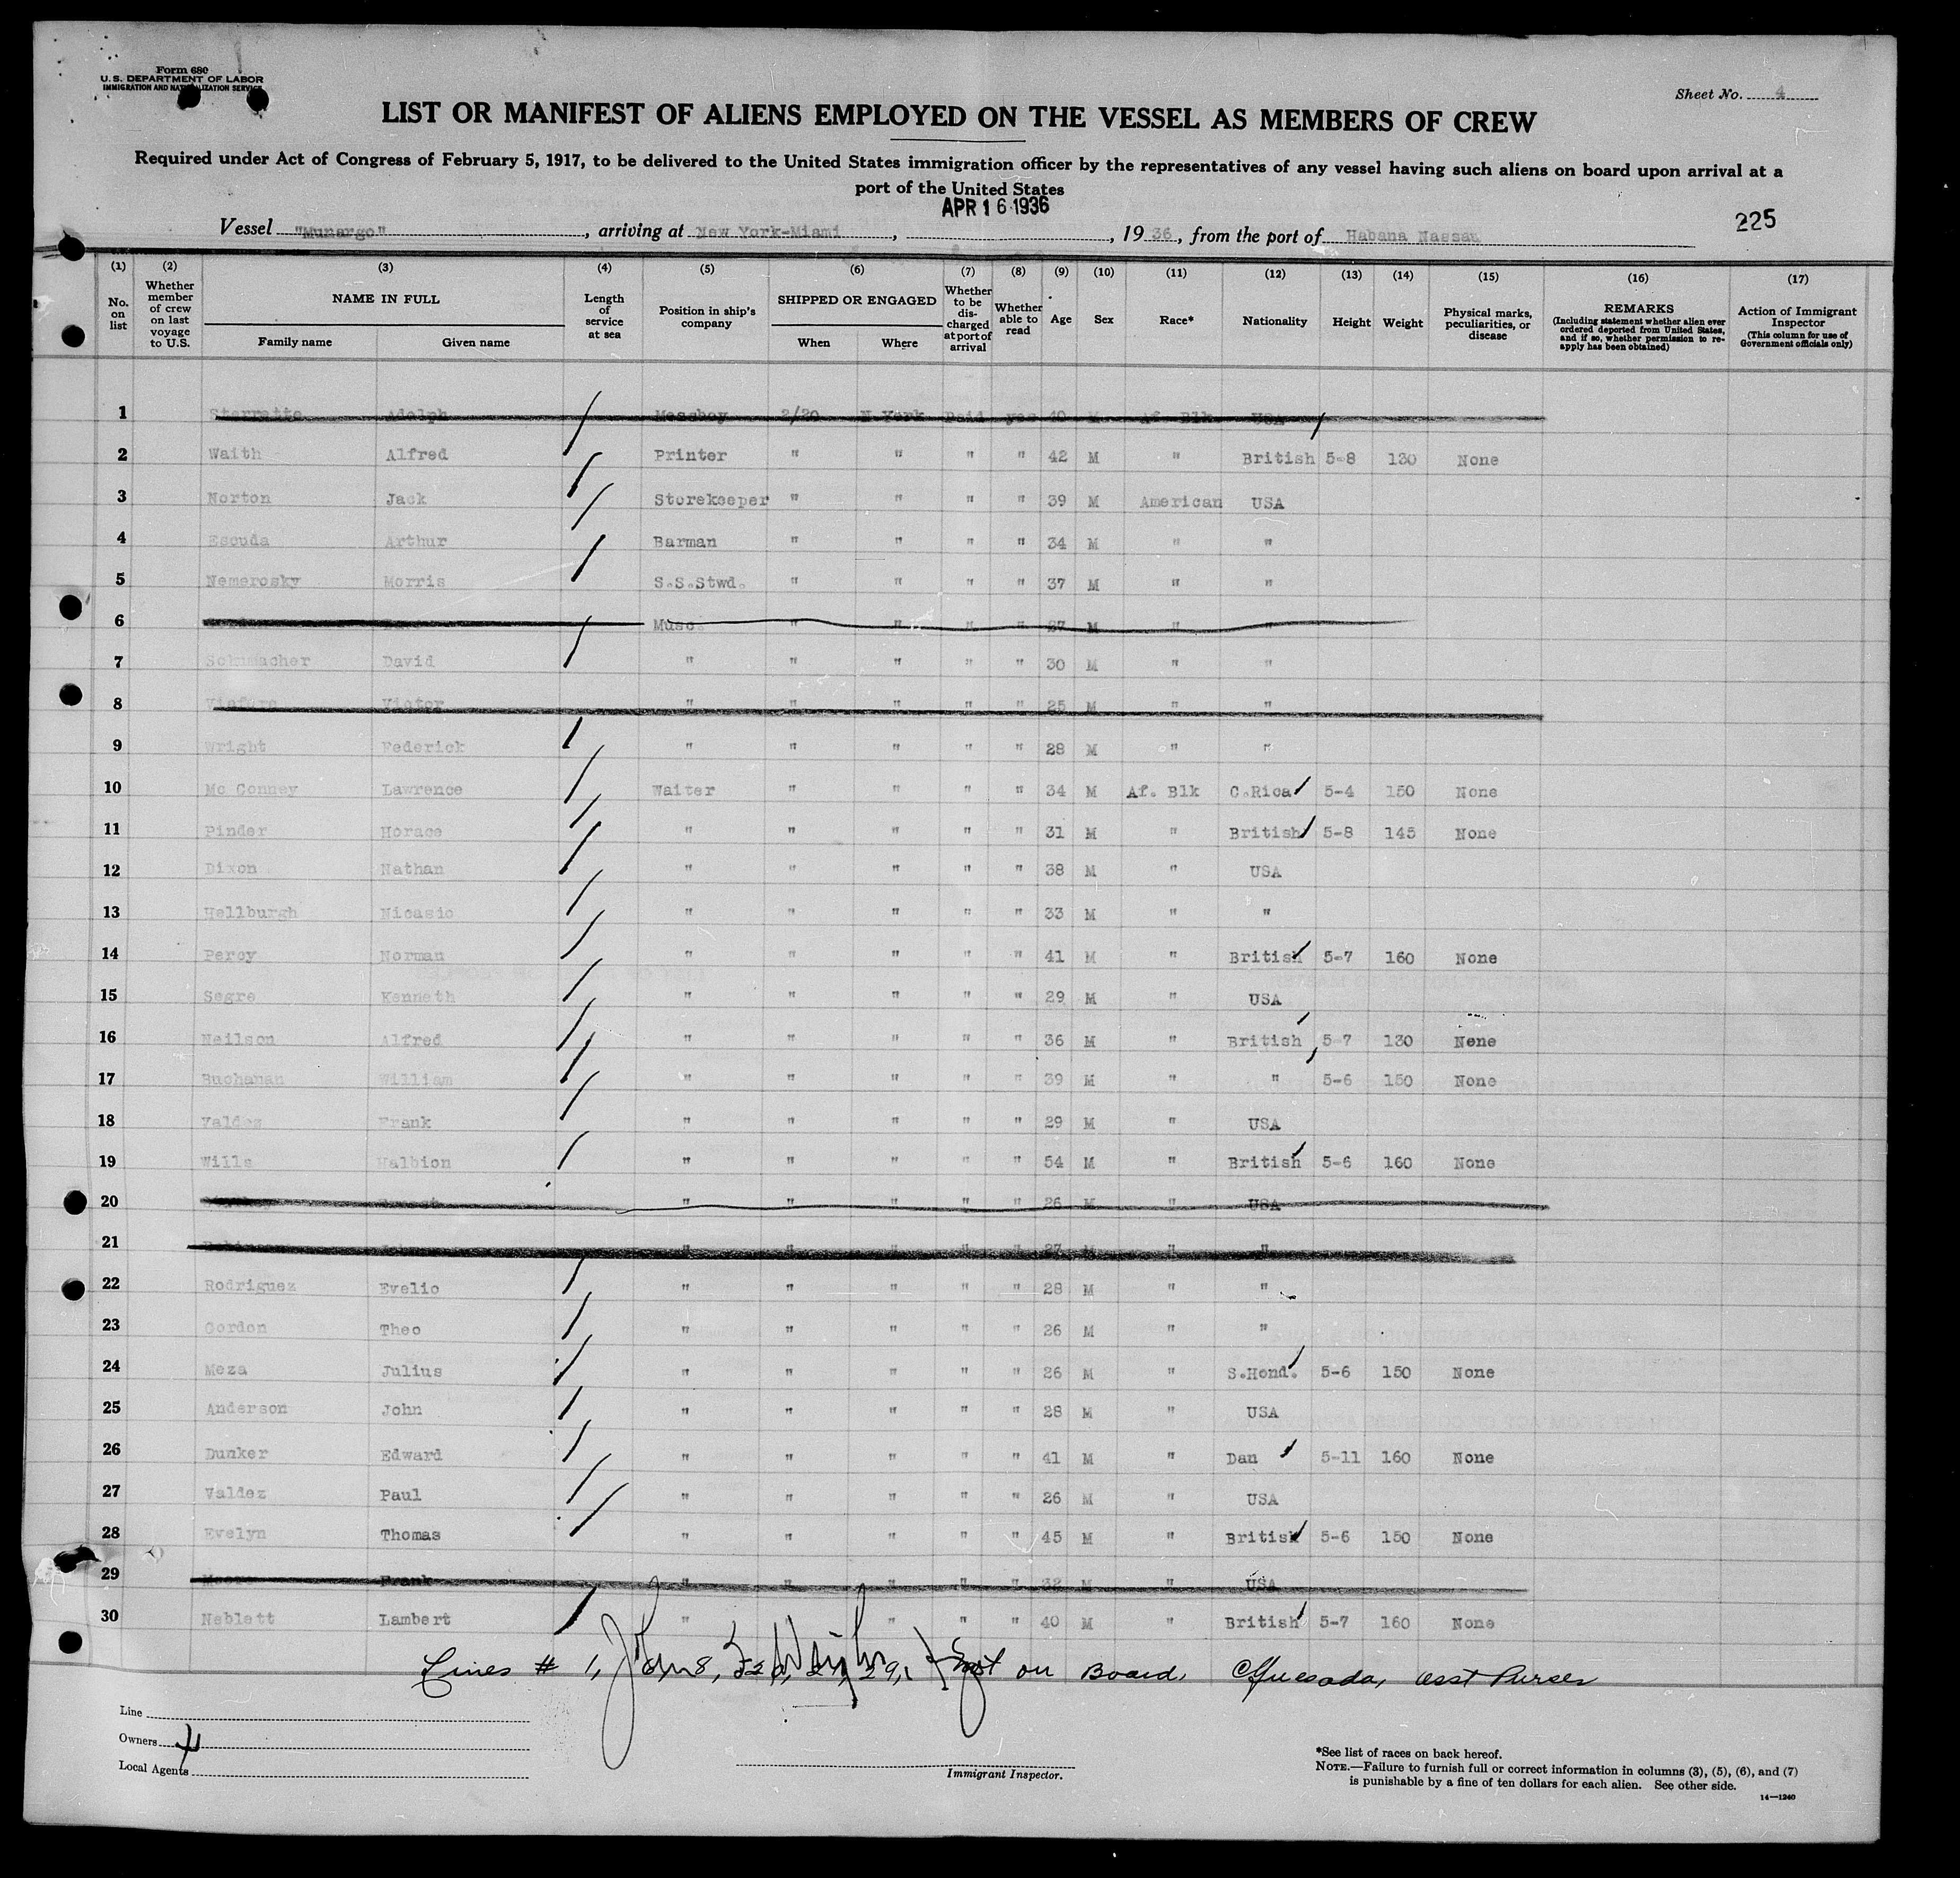 Form 680
U.S. DEPARTMENT OF LABOR
IMMIGRATION AND NATURALIZATION SERVICE
Sheet No. 4
LIST OR MANIFEST OF ALIENS EMPLOYED ON THE VESSEL AS MEMBERS OF CREW
Required under Act of Congress of February 5, 1917, to be delivered to the United States immigration officer by the representatives of any vessel having such aliens on board upon arrival at a
port of the United States
APR 16 1936
Vessel "Munargo", arriving at New York-Miami, , 1936, from the port of Habana Nassau
225
(1) (2) (3) (4) (5) (6) (7) (8) (9) (10) (11) (12) (13) (14) (15) (16) (17)
No. on list
Whether member of crew on last voyage to U.S.
NAME IN FULL
Family name Given name
Length of service at sea
Position in ship's company
SHIPPED OR ENGAGED
When Where
Whether to be discharged at port of arrival
Whether able to read
Age
Sex
Race*
Nationality
Height
Weight
Physical marks, peculiarities, or disease
REMARKS
(Including statement whether alien ever ordered deported from United States, and if so, whether permission to reapply has been obtained)
Action of Immigrant Inspector
(This column for use of Government officials only)
1 Sterratte Adolph Messboy 2/20 N.York Paid yes 40 M Af. Blk USA
2 Waith Alfred Printer " " " " 42 M " British 5-8 130 None
3 Norton Jack Storekeeper " " " " 39 M American USA
4 Escuda Arthur Barman " " " " 34 M " "
5 Nemerosky Morris S.S.Stwd. " " " " 37 M " "
6 Musc. " " " " 27 M " "
7 Schumacher David " " " " " 30 M " "
8 Victor " " " " " 25 M " "
9 Wright Federick " " " " " 28 M " "
10 Mc Conney Lawrence Waiter " " " " 34 M Af. Blk C.Rica 5-4 150 None
11 Pinder Horace " " " " " 31 M " British 5-8 145 None
12 Dixon Nathan " " " " " 38 M " USA
13 Hellburgh Nicasio " " " " " 33 M " "
14 Percy Norman " " " " " 41 M " British 5-7 160 None
15 Segre Kenneth " " " " " 29 M " USA
16 Neilson Alfred " " " " " 36 M " British 5-7 130 None
17 Buchanan William " " " " " 39 M " " 5-6 150 None
18 Valdez Frank " " " " " 29 M " USA
19 Wills Halbion " " " " " 54 M " British 5-6 160 None
20 Ernest " " " " " 26 M " USA
21 " " " " " 27 M " "
22 Rodriguez Evelio " " " " " 28 M " "
23 Gordon Theo " " " " " 26 M " "
24 Meza Julius " " " " " 26 M " S.Hond. 5-6 150 None
25 Anderson John " " " " " 28 M " USA
26 Dunker Edward " " " " " 41 M " Dan 5-11 160 None
27 Valdez Paul " " " " " 26 M " USA
28 Evelyn Thomas " " " " " 45 M " British 5-6 150 None
29 Frank " " " " " 32 M " USA
30 Neblett Lambert " " " " " 40 M " British 5-7 160 None
Lines # 1, 6, 8, 20, 21, 29, not on Board, CQuesada, asst Purser
Line
Owners
Local Agents
Immigrant Inspector.
*See list of races on back hereof.
NOTE.—Failure to furnish full or correct information in columns (3), (5), (6), and (7)
is punishable by a fine of ten dollars for each alien. See other side.
14—1240